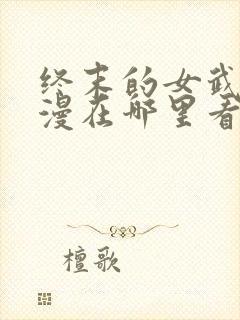 终末的女武
漫在哪里看
檀歌